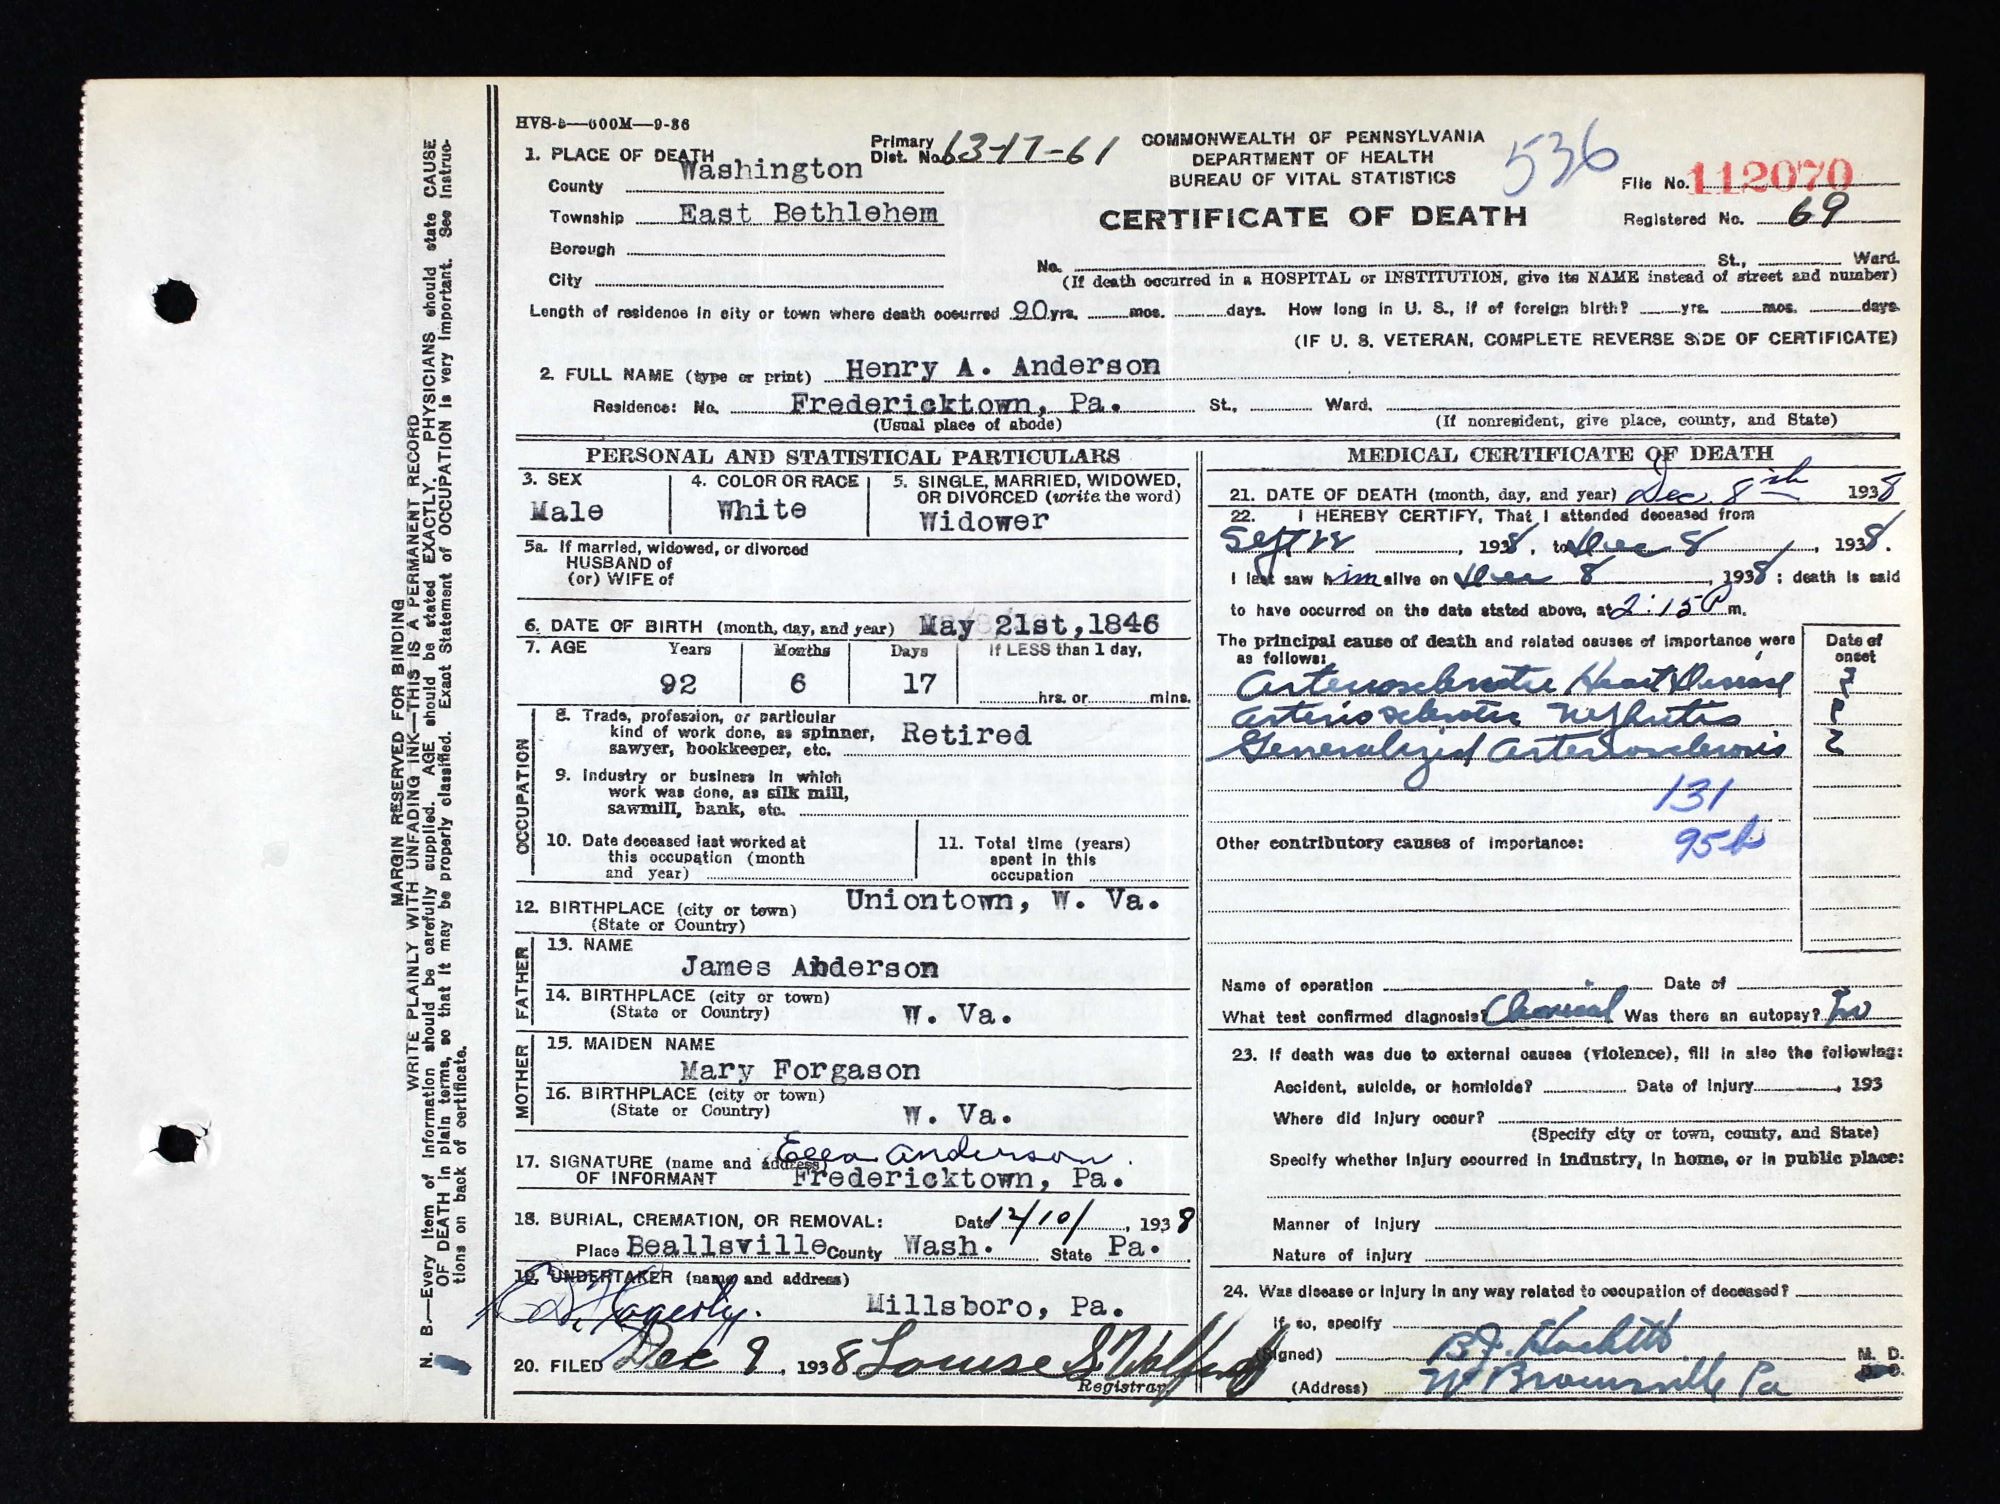 HVS-5—600M—9-36
1. PLACE OF DEATH
County Washington
Township East Bethlehem
Borough
City
Primary
Dist. No. 63-17-61
COMMONWEALTH OF PENNSYLVANIA
DEPARTMENT OF HEALTH
BUREAU OF VITAL STATISTICS
CERTIFICATE OF DEATH
536
File No. 112070
Registered No. 69
No. St., Ward.
(If death occurred in a HOSPITAL or INSTITUTION, give its NAME instead of street and number)
Length of residence in city or town where death occurred 90 yrs. mos. days. How long in U. S., if of foreign birth? yrs. mos. days.
(IF U. S. VETERAN, COMPLETE REVERSE SIDE OF CERTIFICATE)
2. FULL NAME (type or print) Henry A. Anderson
Residence: No. Fredericktown, Pa. St., Ward.
(Usual place of abode) (If nonresident, give place, county, and State)
PERSONAL AND STATISTICAL PARTICULARS
3. SEX
Male
4. COLOR OR RACE
White
5. SINGLE, MARRIED, WIDOWED,
OR DIVORCED (write the word)
Widower
5a. If married, widowed, or divorced
HUSBAND of
(or) WIFE of
6. DATE OF BIRTH (month, day, and year) May 21st, 1846
7. AGE Years Months Days If LESS than 1 day,
92 6 17 hrs. or mins.
OCCUPATION
8. Trade, profession, or particular
kind of work done, as spinner,
sawyer, bookkeeper, etc. Retired
9. Industry or business in which
work was done, as silk mill,
sawmill, bank, etc.
10. Date deceased last worked at
this occupation (month
and year)
11. Total time (years)
spent in this
occupation
12. BIRTHPLACE (city or town) Uniontown, W. Va.
(State or Country)
FATHER
13. NAME
James Anderson
14. BIRTHPLACE (city or town)
(State or Country) W. Va.
MOTHER
15. MAIDEN NAME
Mary Forgason
16. BIRTHPLACE (city or town)
(State or Country) W. Va.
17. SIGNATURE (name and address) Ella Anderson.
OF INFORMANT Fredericktown, Pa.
18. BURIAL, CREMATION, OR REMOVAL: Date 12/10/, 1938
Place Beallsville County Wash. State Pa.
19. UNDERTAKER (name and address)
Millsboro, Pa.
20. FILED Dec 9, 1938 Louise S.
Registrar
MEDICAL CERTIFICATE OF DEATH
21. DATE OF DEATH (month, day, and year) Dec 8th 1938
22. I HEREBY CERTIFY, That I attended deceased from
Sept , 1938, to Dec 8, 1938.
I last saw him alive on Dec 8, 1938; death is said
to have occurred on the date stated above, at 2:15 P m.
The principal cause of death and related causes of importance were
as follows:
Date of
onset
Arteriosclerotic Heart Disease ?
Arteriosclerotic Nephritis ?
Generalized Arteriosclerosis ?
131
Other contributory causes of importance:
95b
Name of operation Date of
What test confirmed diagnosis? Clinical Was there an autopsy? No
23. If death was due to external causes (violence), fill in also the following:
Accident, suicide, or homicide? Date of Injury , 193
Where did injury occur?
(Specify city or town, county, and State)
Specify whether injury occurred in industry, in home, or in public place:
Manner of Injury
Nature of Injury
24. Was disease or injury in any way related to occupation of deceased?
If so, specify
(Signed) B.F. Hackett M. D.
(Address) W Brownsville Pa
MARGIN RESERVED FOR BINDING
WRITE PLAINLY WITH UNFADING INK—THIS IS A PERMANENT RECORD
N. B.—Every item of information should be carefully supplied. AGE should be stated EXACTLY. PHYSICIANS should state CAUSE
OF DEATH in plain terms, so that it may be properly classified. Exact Statement of OCCUPATION is very important. See Instruc-
tions on back of certificate.